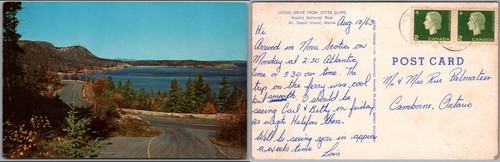 OCEAN DRIVE FROM OTTER CLIFFS
Acadia National Park
Mt. Desert Island, Maine
Aug 12/63
Hi
Arrived in Nova Scotia on
Monday at 2:30 Atlantic
time or 3:30 our time. The
trip on the ferry was cool
but smooth. I should be
seeing Carl & Betty on Friday
as want Halifax then.
Will be seeing you in approx
2 weeks time
Lois
2 CANADA
2 CANADA
POST CARD
Mr & Mrs Rae Palmateer
Camborne, Ontario